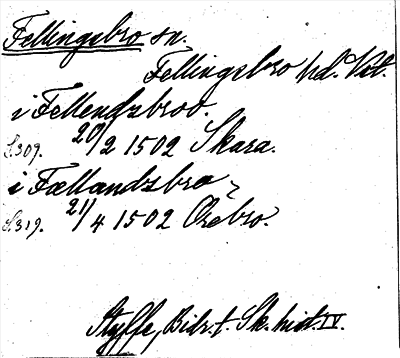 Fellingsbro sn.
Fellingsbro hd. Vstl.
i Fellendzbroo.
S.309. 20/2 1502 Skara.
i Fællandzbro
S.319. 21/4 1502 Örebro.
Styffe, Bidr. t. Sk. hist. IV.